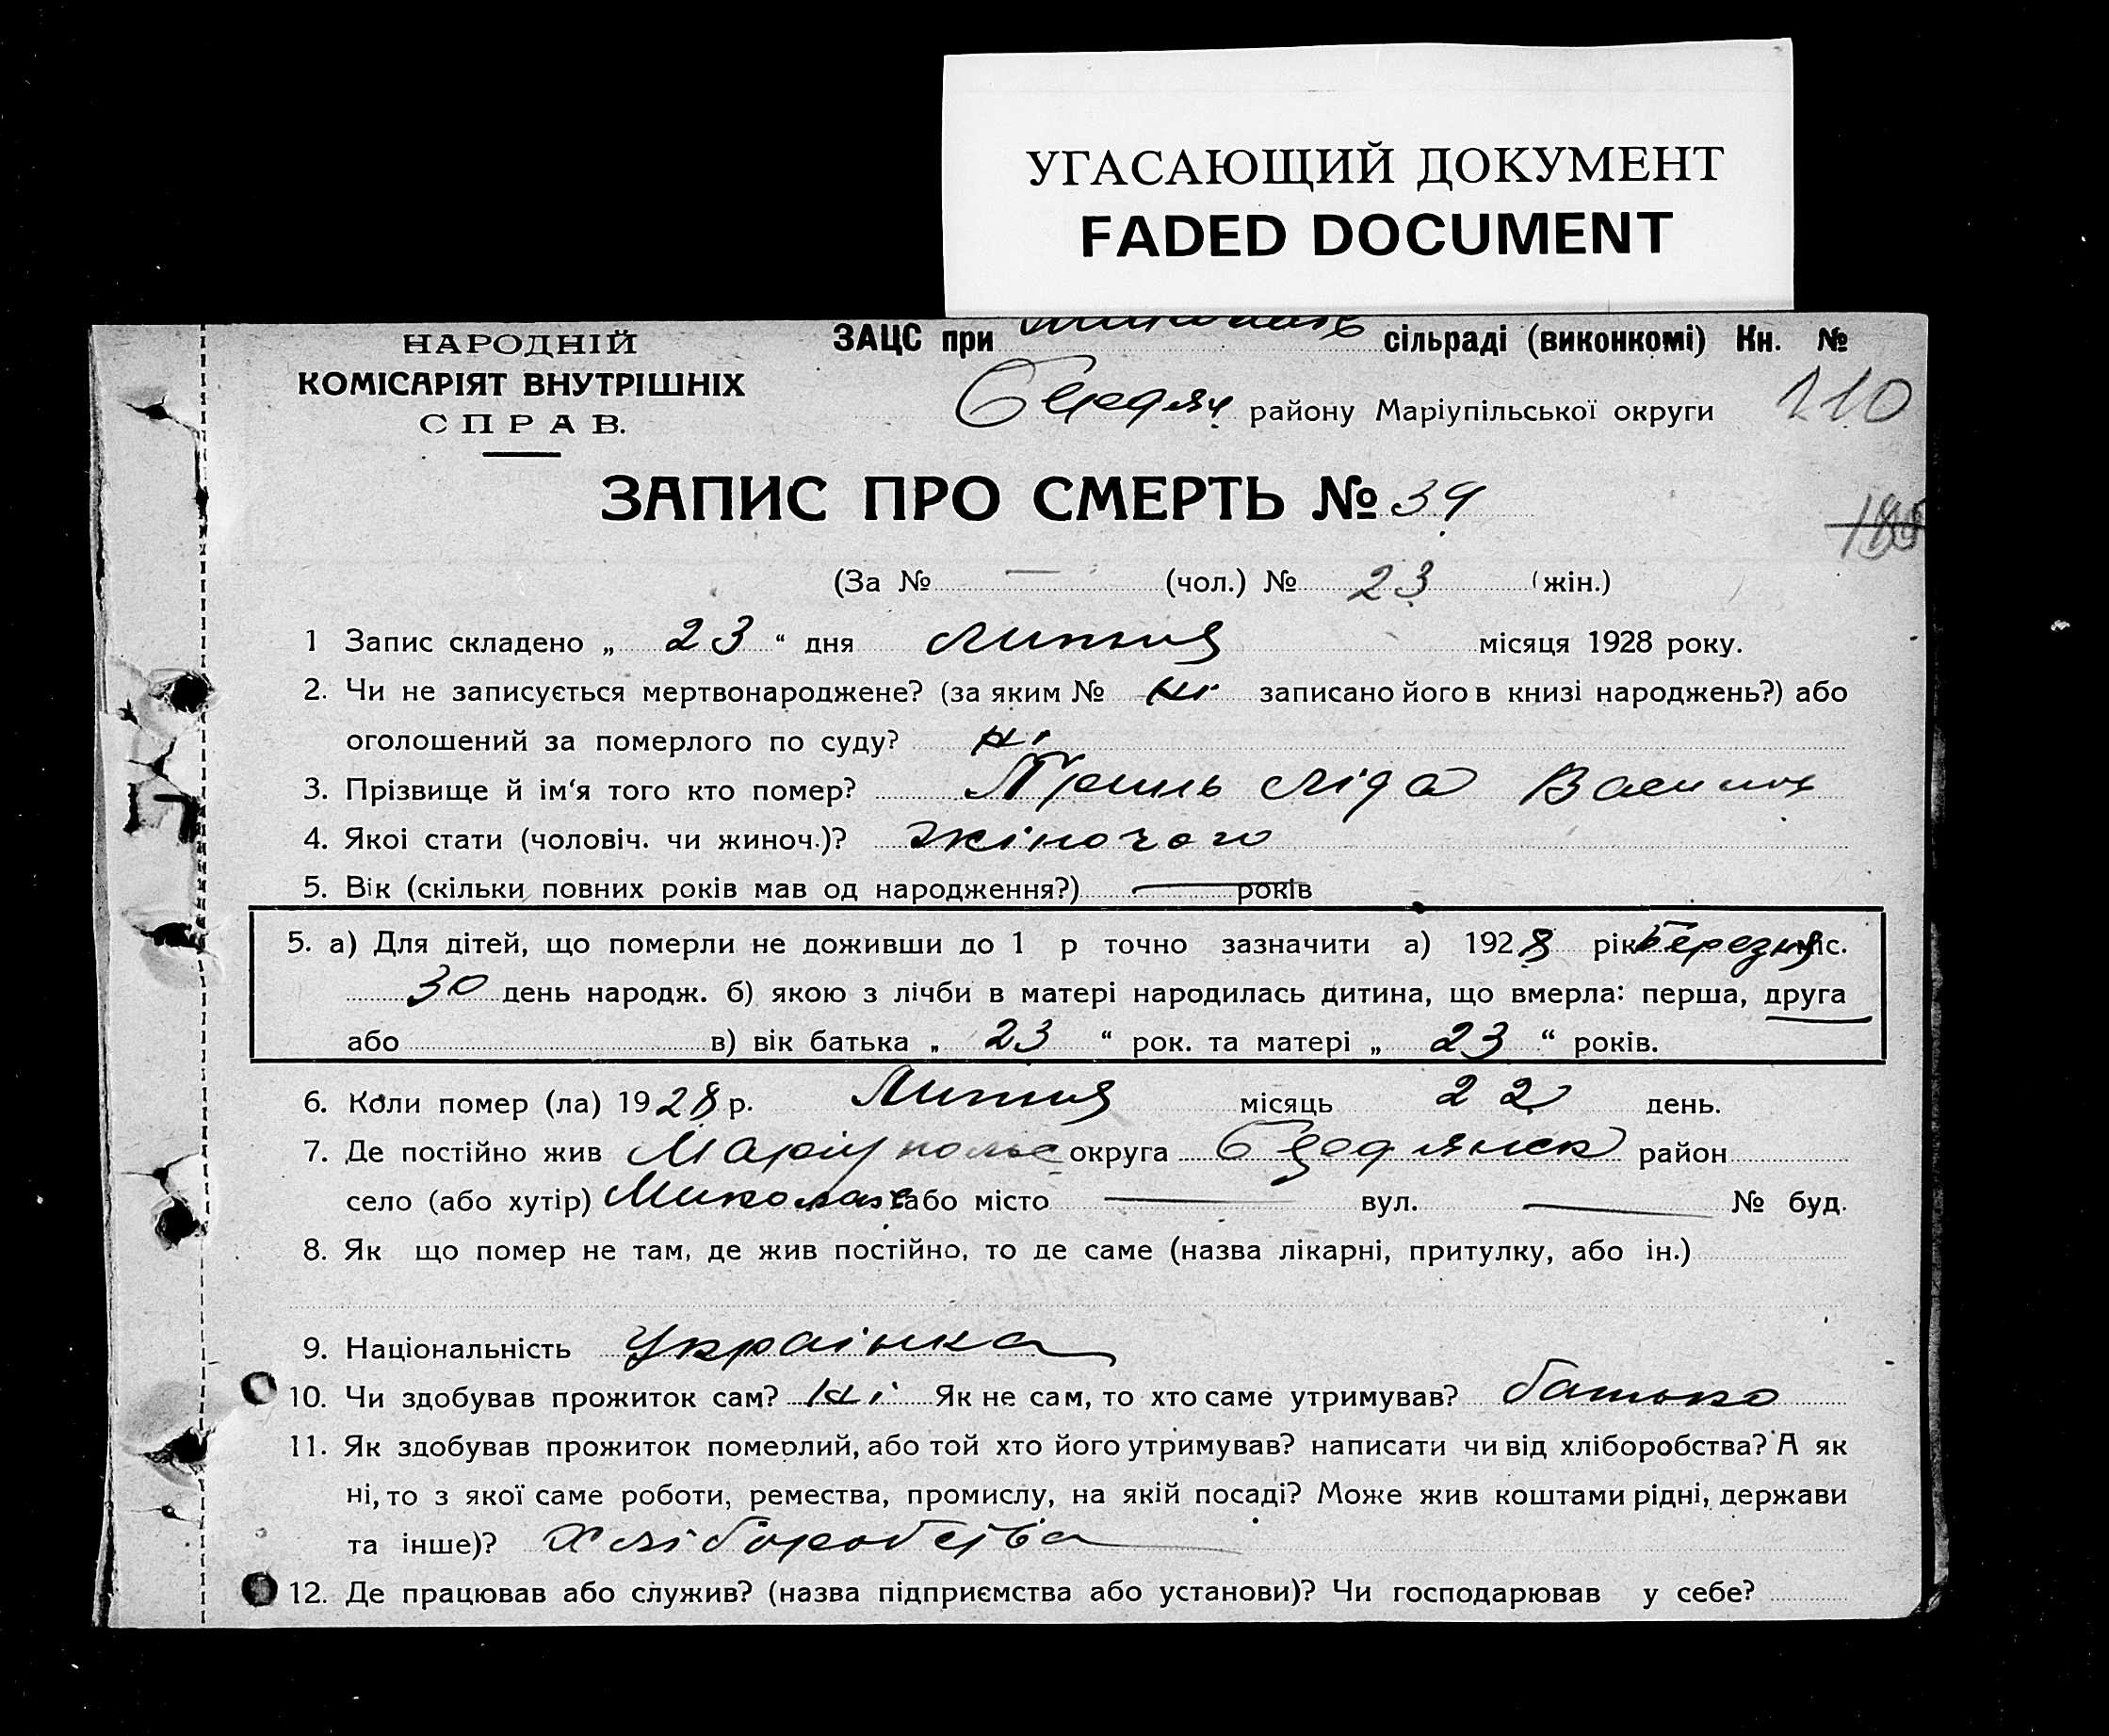 УГАСАЮЩИЙ ДОКУМЕНТ
FADED DOCUMENT
НАРОДНІЙ
КОМІСАРІЯТ ВНУТРІШНІХ
СПРАВ.
ЗАЦС при сільраді (виконкомі) Кн. №
району Маріупільської округи 110
ЗАПИС ПРО СМЕРТЬ № 39
(За № — (чол.) № 23 (жін.)
1 Запис складено „ 23 “ дня липня місяця 1928 року.
2. Чи не записується мертвонароджене? (за яким № ні записано його в книзі народжень?) або
оголошений за померлого по суду? ні
3. Прізвище й ім‘я того кто помер? Ліда
4. Якоі стати (чоловіч. чи жиноч.)? жіночого
5. Вік (скільки повних років мав од народження?) — років
5. а) Для дітей, що померли не доживши до 1 р точно зазначити а) 1928 рік березня міс.
30 день народж. б) якою з лічби в матері народилась дитина, що вмерла: перша, друга
або в) вік батька „ 23 “ рок. та матері „ 23 “ років.
6. Коли помер (ла) 1928 р. Липня місяць 22 день.
7. Де постійно жив Маріупольс округа район
село (або хутір) або місто — вул. — № буд.
8. Як що помер не там, де жив постійно, то де саме (назва лікарні, притулку, або ін.)
9. Національність Українка
10. Чи здобував прожиток сам? ні Як не сам, то хто саме утримував? батько
11. Як здобував прожиток померлий, або той хто його утримував? написати чи від хліборобства? А як
ні, то з якої саме роботи, ремества, промислу, на якій посаді? Може жив коштами рідні, держави
та інше)? Хліборобства
12. Де працював або служив? (назва підприємства або установи)? Чи господарював у себе?